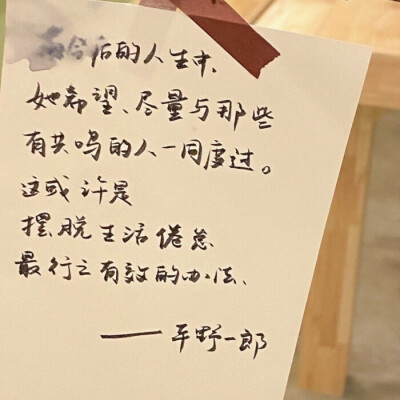 在今后的人生中、
她希望、尽量与那些
有共鸣的人一同度过。
这或许是
摆脱生活倦怠、
最行之有效的办法、
——平野一郎